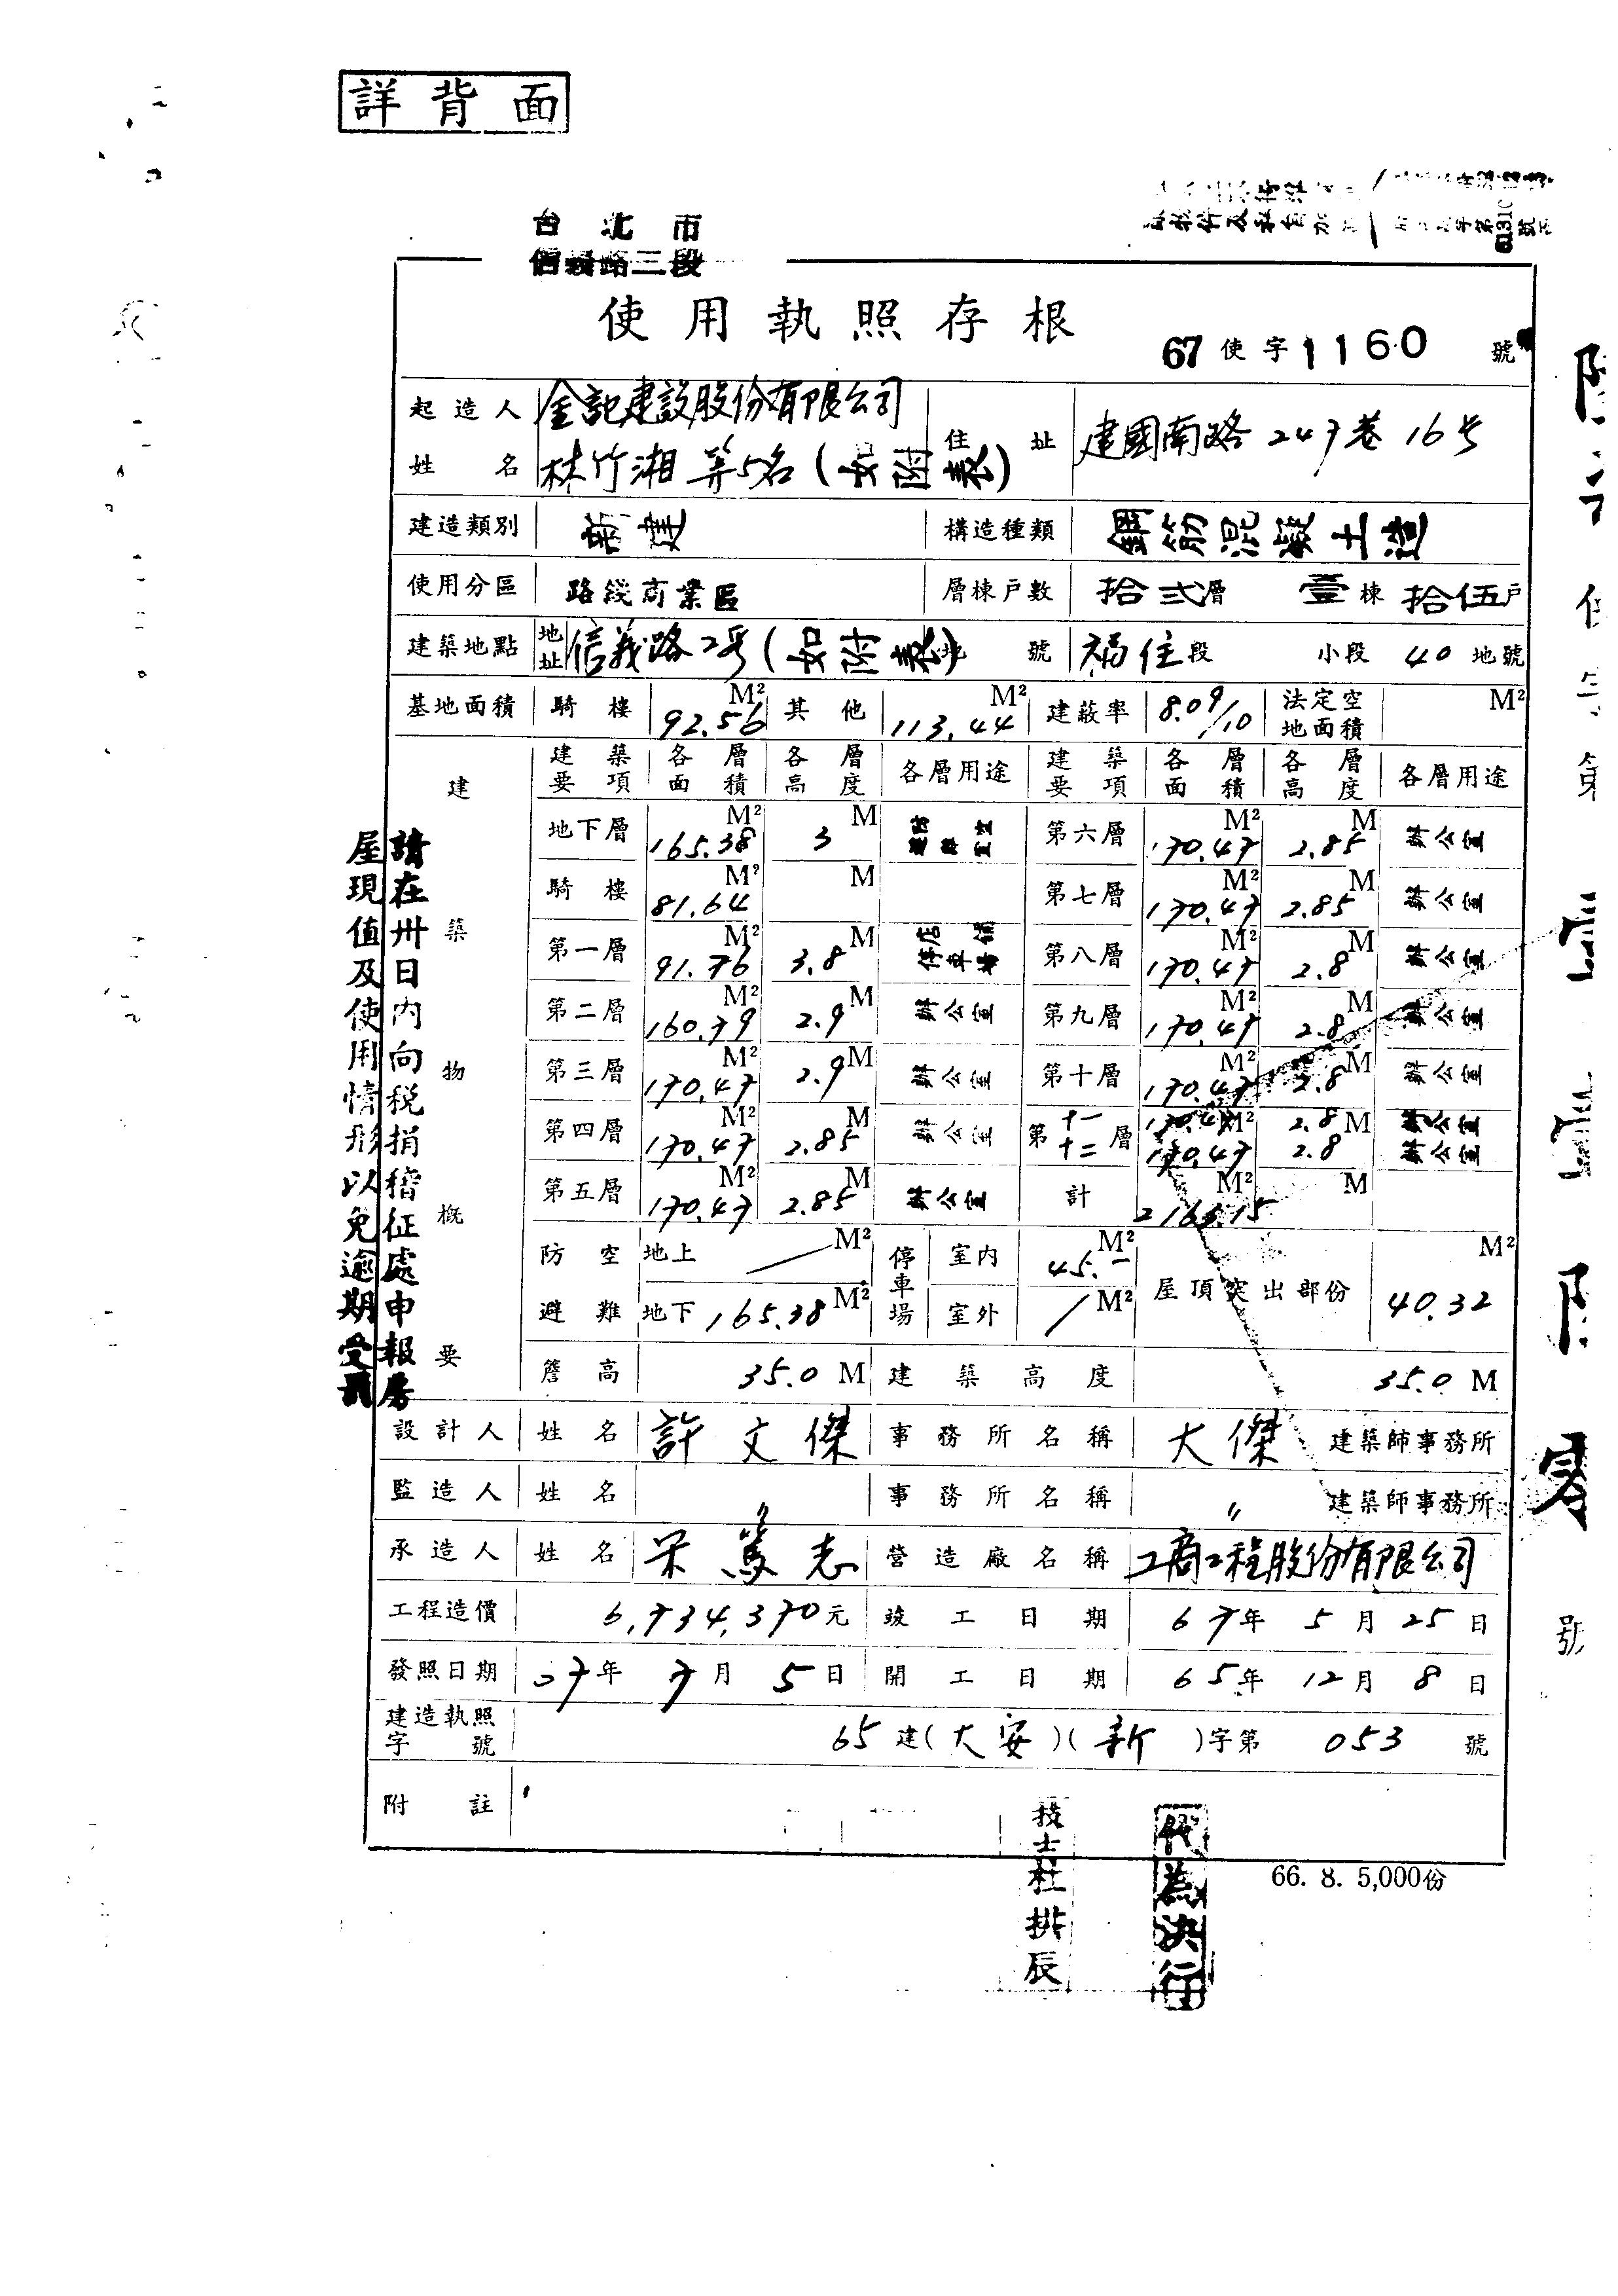 詳背面
台北市
信義路三段
使用執照存根
67使字1160號
起造人姓名 金記建設股份有限公司
林竹湘等5名(如附表)
住址 建國南路247巷16号
建造類別 新建 構造種類 鋼筋混凝土造
使用分區 路綫商業區 層棟戶數 拾弍層 壹棟 拾伍戶
建築地點 地址 信義路2号(如附表) 地號 福住段 小段 40地號
基地面積 騎樓 92.56 M² 其他 113.44 M² 建蔽率 8.09/10 法定空地面積 M²
建築物概要
建築要項 各層面積 各層高度 各層用途 建築要項 各層面積 各層高度 各層用途
地下層 165.38 M² 3 M 第六層 170.47 M² 2.85 M 辦公室
騎樓 81.64 M² M 第七層 170.47 M² 2.85 M 辦公室
第一層 91.76 M² 3.8 M 店舖 停車場 第八層 170.47 M² 2.8 M 辦公室
第二層 160.79 M² 2.9 M 辦公室 第九層 170.47 M² 2.8 M 辦公室
第三層 170.47 M² 2.9 M 辦公室 第十層 170.47 M² 2.8 M 辦公室
第四層 170.47 M² 2.85 M 辦公室 第十一層 170.47 M² 2.8 M 辦公室
十二 170.47 2.8 辦公室
第五層 170.47 M² 2.85 M 辦公室 計 2163.15 M² M
防空避難 地上 / M² 停車場 室內 45.- M² 屋頂突出部份 40.32 M²
地下 165.38 M² 室外 / M²
簷高 35.0 M 建築高度 35.0 M
設計人 姓名 許文傑 事務所名稱 大傑 建築師事務所
監造人 姓名 〃 事務所名稱 〃 建築師事務所
承造人 姓名 宋篤志 營造廠名稱 工商工程股份有限公司
工程造價 6,734,370元 竣工日期 67年5月25日
發照日期 7年7月5日 開工日期 65年12月8日
建造執照字號 65建(大安)(新)字第053號
附註
請在卅日內向稅捐稽征處申報房
屋現值及使用情形以免逾期受罰
技士杜排辰
代為決行
66. 8. 5,000份
號